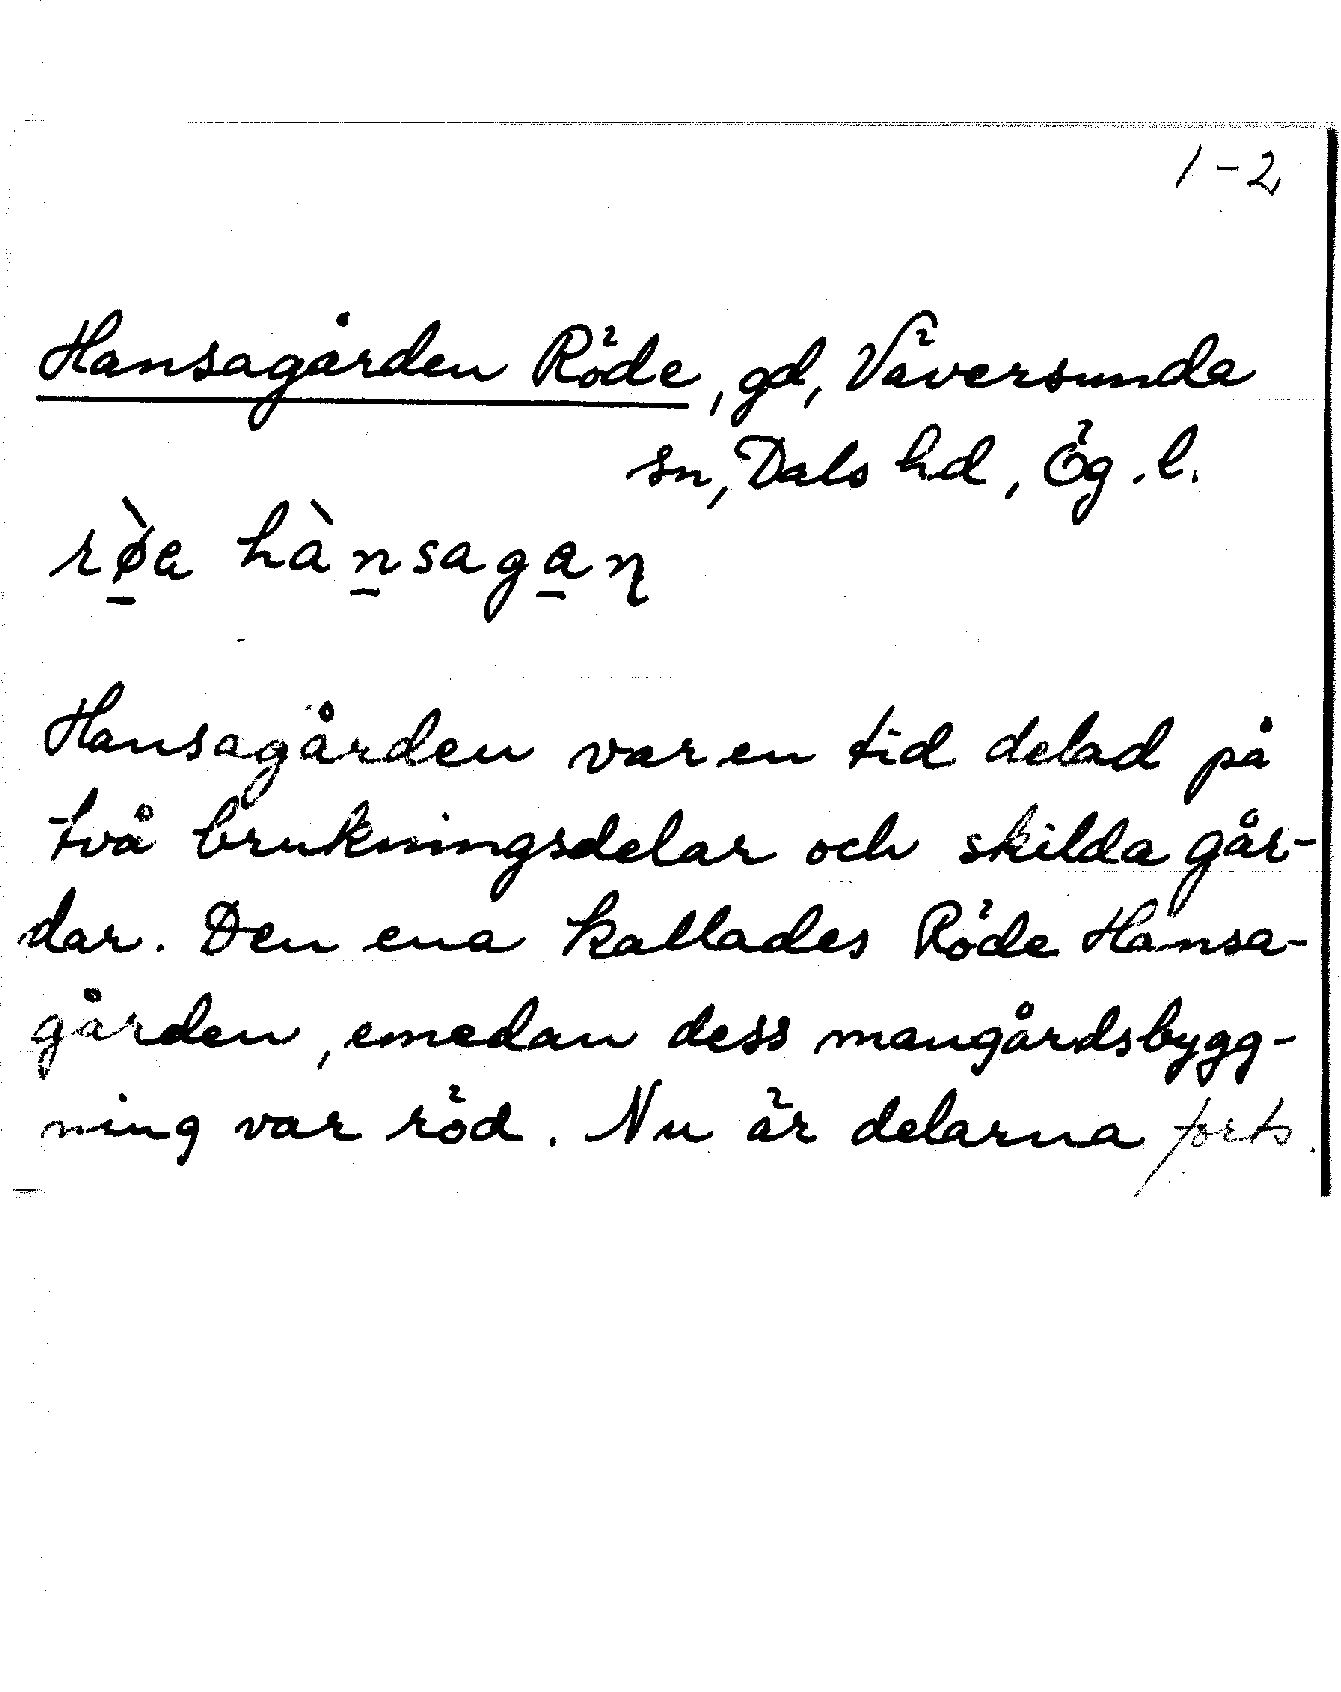 1-2
Hansagården Röde, gd, Väversunda
sn, Dals hd, Ög.l.
rø̀a hànsagaɳ
Hansagården var en tid delad på
två brukningsdelar och skilda går-
dar. Den ena kallades Röde Hansa-
gården, emedan dess mangårdsbygg-
ning var röd. Nu är delarna forts.